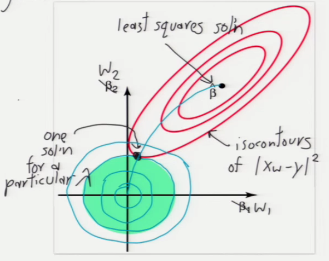 least squares sol'n
β̂
W₂
β₂
one
sol'n
for a
particular λ
isocontours
of |Xw-y|²
β₁ W₁